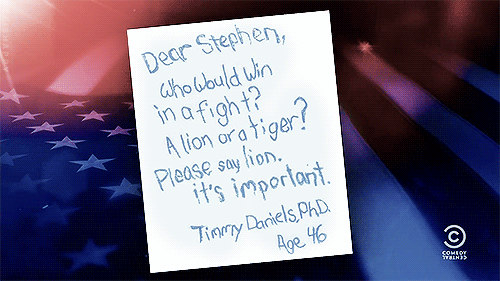 Dear Stephen,
Who Would Win
in a fight?
A lion or a tiger?
Please say lion.
it's important.
Timmy Daniels, PhD.
Age 46
COMEDY
CENTRAL